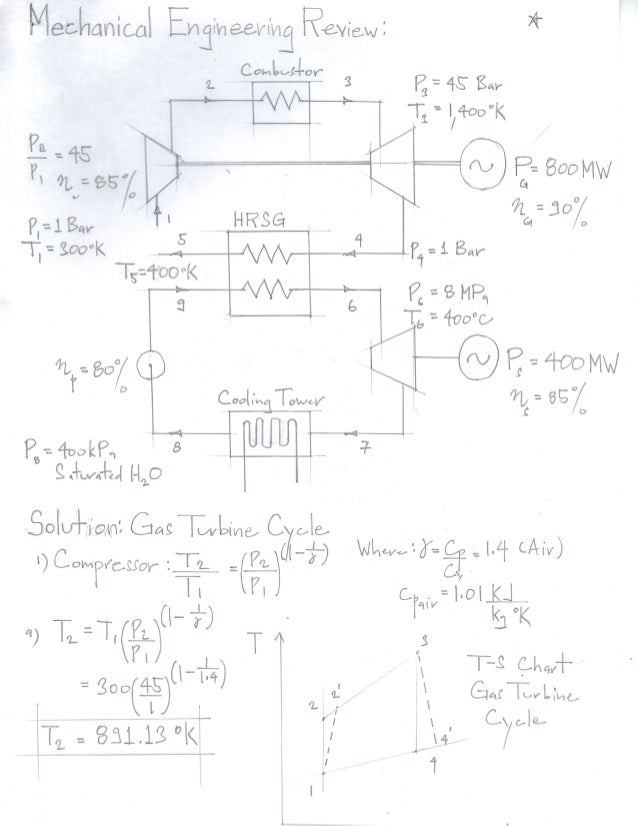 Mechanical Engineering Review:
Combustor
2
3
P₃ = 45 Bar
T₃ = 1,400°K
P₂/P₁ = 45
η_c = 85%
P_G = 800 MW
η_G = 90%
1
P₁ = 1 Bar
T₁ = 300°K
HRSG
5
4
P₄ = 1 Bar
T₅ = 400°K
9
6
P₆ = 8 MPa
T₆ = 400°C
η_p = 80%
P_s = 400 MW
η_s = 85%
Cooling Tower
8
7
P₈ = 400kPa
Saturated H₂O
Solution: Gas Turbine Cycle
1) Compressor: T₂/T₁ = (P₂/P₁)^(1-1/γ) Where: γ = Cp/Cv = 1.4 (Air)
Cp air = 1.01 KJ/kg °K
a) T₂ = T₁(P₂/P₁)^(1-1/γ)
= 300(45/1)^(1-1/1.4)
T₂ = 891.13 °K
T
3
2
2'
4'
4
1
T-S Chart
Gas Turbine
Cycle